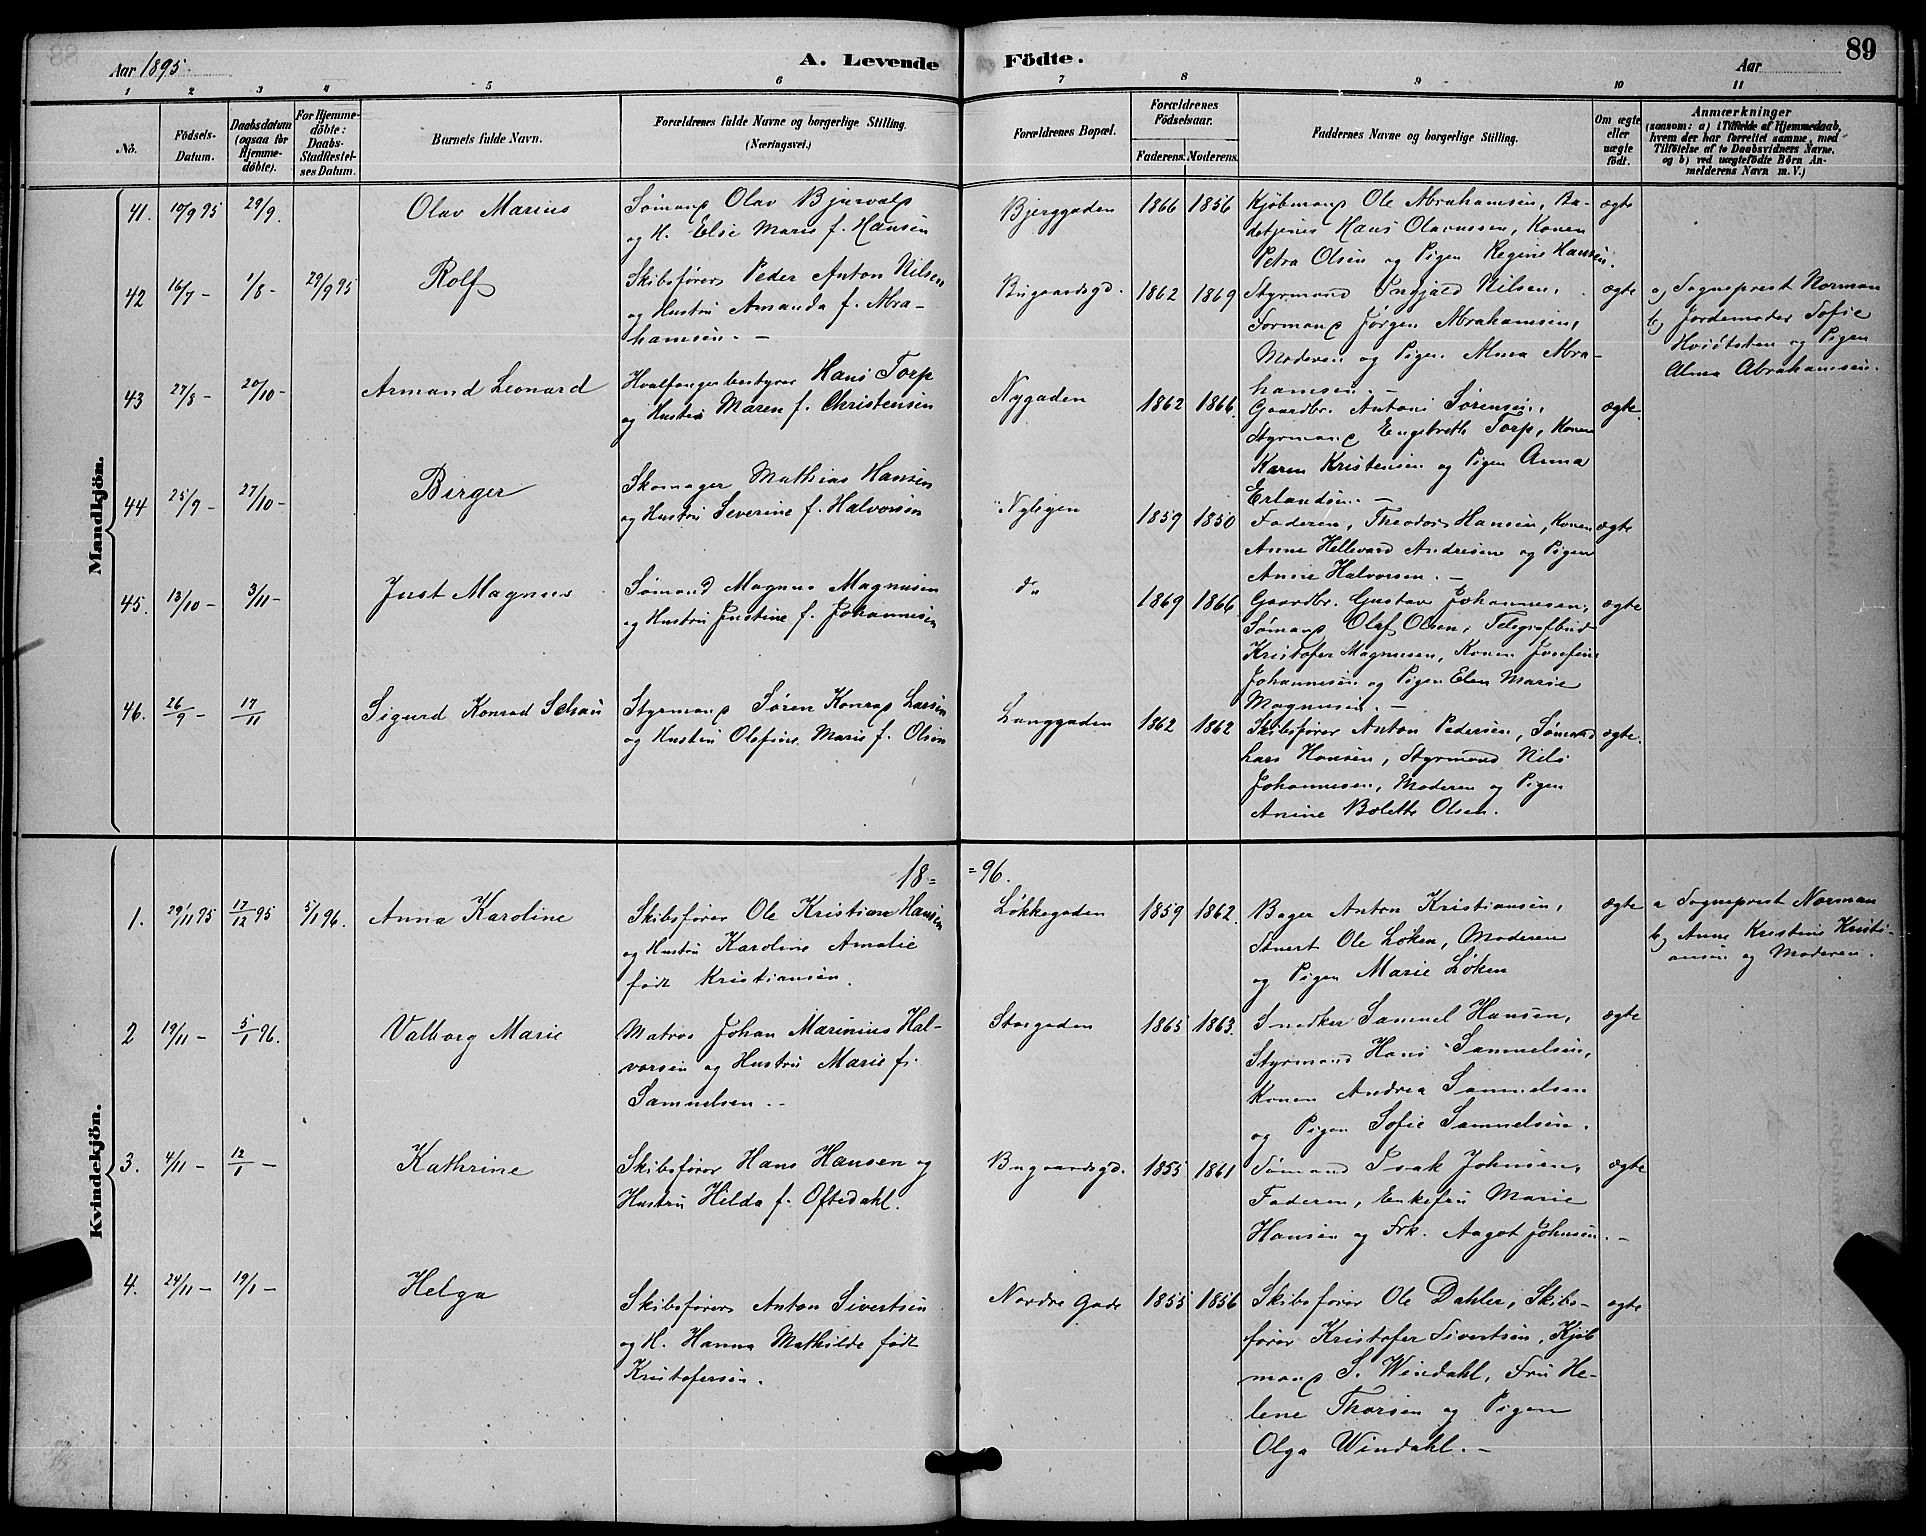 89
Aar 1895.
A. Levende Födte.
Aar
1 2 3 4 5 6 7 8 9 10 11
No.
Födsels-
Datum.
Daabsdatum
(ogsaa for
Hjemme-
döbte).
For Hjemme-
döbte:
Daabs-
Stadfæstel-
ses Datum.
Barnets fulde Navn.
Forældrenes fulde Navne og borgerlige Stilling.
(Næringsvei.)
Forældrenes Bopæl.
Forældrenes
Födselsaar.
Faderens. Moderens.
Faddernes Navne og borgerlige Stilling.
Om ægte
eller
uægte
födt.
Anmærkninger
(saasom: a) i Tilfælde af Hjemmedaab,
hvem der har forrettet samme, med
Tilföielse af to Daabsvidners Navne,
og b) ved uægtefödte Börn An-
melderens Navn m. V.)
Mandkjön.
41. 10/9 95 29/9. Olav Marius
Sømand Olav Bjurvald
og H. Else Marie f. Hansen
Bjerggaden 1866 1856
Kjøbmand Ole Abrahamsen,
Hans Olavussen, Konen
Petra Olsen og Pigen Regine Hansen.
ægte
42 16/7 - 1/8 - 29/9 95 Rolf
Skibsfører Peder Anton Nilsen
og Hustru Amanda f. Abra-
hamsen. -
Bugaardsgd. 1862 1869
Styrmand Ingjald Nilsen,
Formand Jørgen Abrahamsen,
Moderen og Pigen Alma Abra-
hamsen. -
ægte
a) Sogneprest Norman
b) Jordemoder Sofie
Hvidtsten og Pigen
Alma Abrahamsen.
43 27/8 - 20/10 - Armand Leonard
Hvalfangerbestyrer Hans Torp
og Hustru Maren f. Christensen
Nygaden 1862 1866.
Gaardbr. Anton Sørensen,
Styrmand Engebreth Torp, Konen
Karen Kristensen og Pigen Anna
Erlandsen. -
ægte.
44 25/9 - 27/10 - Birger
Skomager Mathias Hansen
og Hustru Severine f. Halvorsen
Nybyen 1859 1850
Faderen, Theodor Hansen, Konen
Anne Hellevard Andresen og Pigen
Anne Halvorsen. -
ægte
45. 13/10 - 3/11 - Just Magnus
Sømand Magnus Magnusen
og Hustru Justine f. Johannesen
do 1869 1866
Gaardbr. Gustav Johannesen,
Sømand Olaf Olsen, Telegrafbud
Kristofer Magnusen, Konen Josefine
Johannesen og Pigen Elen Marie
Magnusen. -
ægte
46. 26/9 - 17/11 Sigurd Konrad Schau
Styrmand Søren Konrad Larsen
og Hustru Olefine Marie f. Olsen
Langgaden 1862 1862
Skibsfører Anton Pedersen, Sømand
Lars Hansen, Styrmand Nils
Johannesen, Moderen og Pigen
Anine Bolette Olsen.
ægte.
Kvindekjön.
18= =96.
1. 29/11 95 17/12 95 5/1 96. Anna Karoline
Skibsfører Ole Kristian Hansen
og Hustru Karoline Amalie
født Kristiansen.
Løkkegaden 1859 1862.
Bager Anton Kristiansen,
Stuert Ole Løken, Moderen
og Pigen Marie Løken
ægte
a Sogneprest Norman
b) Anne Kristine Kristi-
ansen og Moderen.
2 19/11 - 5/1 96. Valborg Marie
Matros Johan Marinius Hal-
vorsen og Hustru Marie f.
Samuelsen. -
Storgaden 1865 1863.
Snedker Samuel Hansen,
Styrmand Hans Samuelsen,
Konen Andrea Samuelsen
og Pigen Sofie Samuelsen.
ægte
3. 4/11 - 12/1 - Kathrine
Skibsfører Hans Hansen og
Hustru Hilda f. Oftedahl.
Bugaardsgd. 1855 1861
Sømand Isak Johnsen,
Faderen, Enkefru Marie
Hansen og Frk. Aagot Johnsen. -
ægte
4. 24/11 - 19/1 - Helga
Skibsfører Anton Sivertsen
og H. Hanna Mathilde født
Kristofersen.
Nordre Gade 1855 1856
Skibsfører Ole Dahler, Skibs-
fører Kristofer Sivertsen, Kjøb
mand S. Windahl, Fru He-
lene Thorsen og Pigen
Olga Windahl. -
ægte